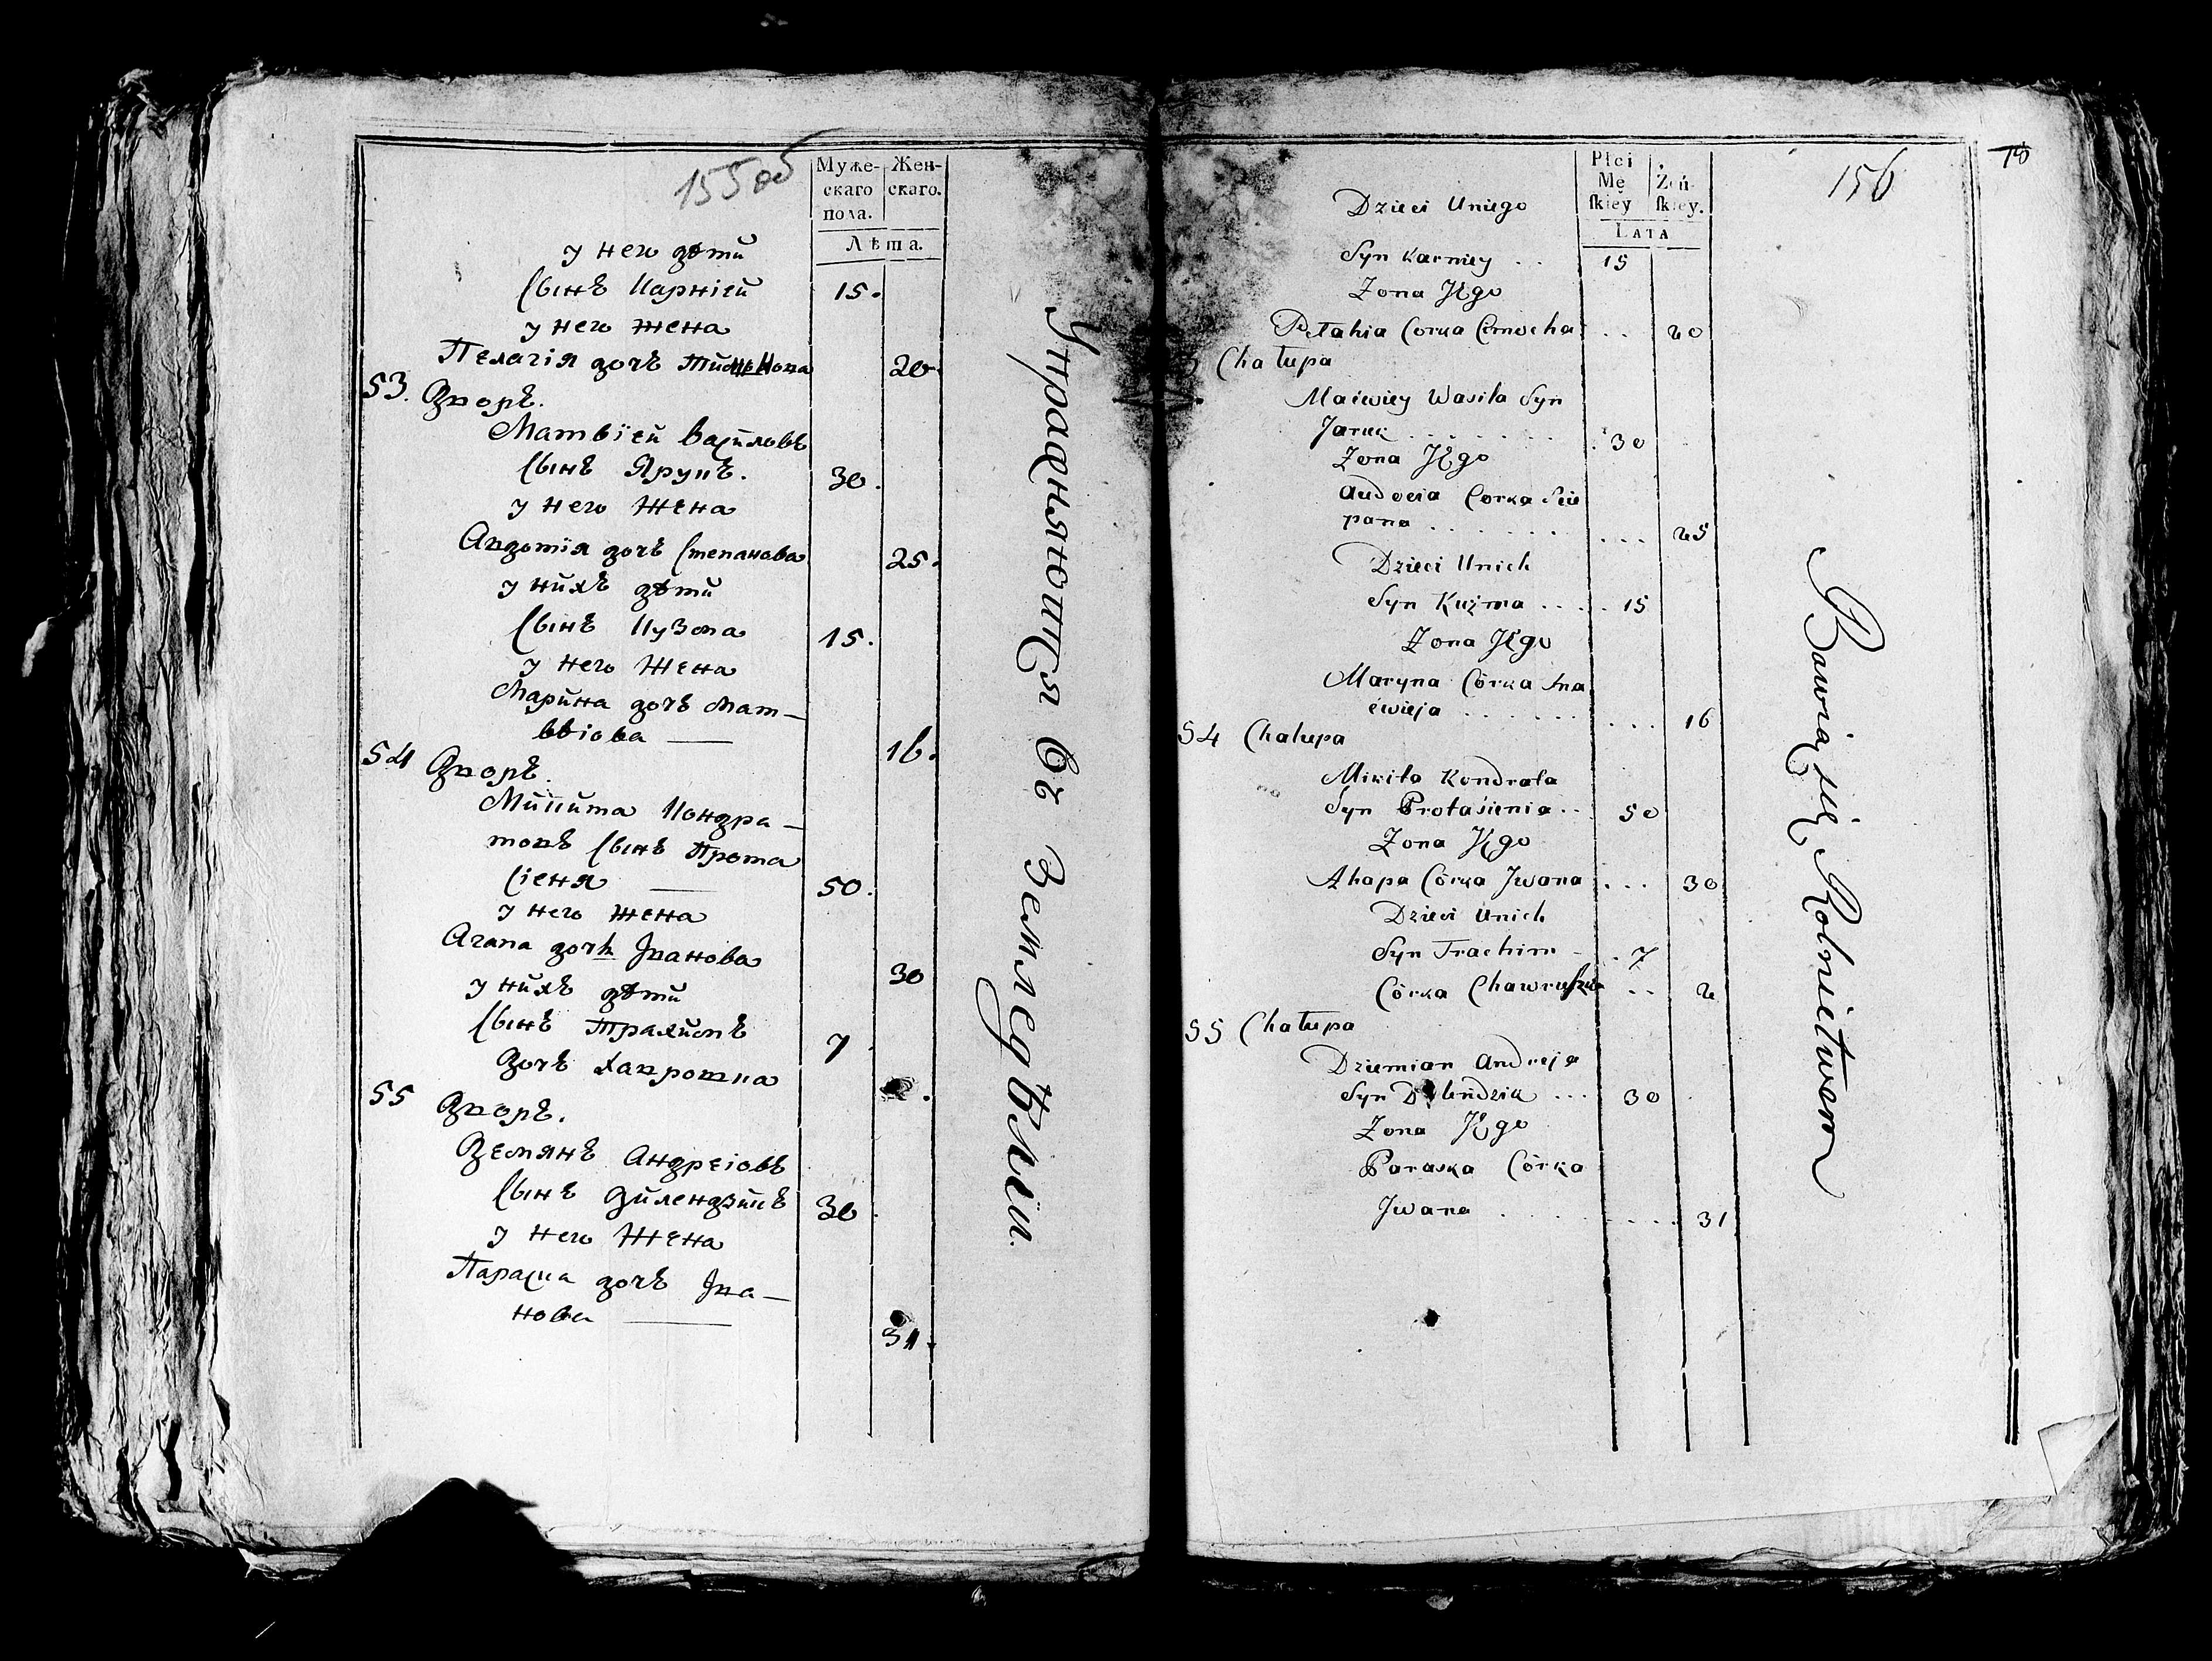 155 об
Муже-
скаго
пола.
Жен-
скаго.
Лѣта.
у него дѣти
Сынъ Карнiей 15.
у него жена
Пелагія дочъ 20
53. Дворъ.
Матвѣей Василовъ
Сынъ Ярукъ. 30.
у него жена
Авдотїя дочъ Степанова 25.
у нихъ дѣти
Сынъ Кузма 15.
у него жена
Марина дочъ Мат–
вѣіова — 16.
54 Дворъ.
Микита Кондра–
товъ Сынъ Прота
Сіеня — 50.
у него жена
Агапа дочъ Іванова 30
у нихъ дѣти
Сынъ Трахимъ 7
Дочъ Хаврошка
55 Дворъ.
Демянъ Андреіовъ
Сынъ Дилендзикъ 30
у него жена
Параска дочъ Іва–
нова — 31.
Упражняются въ Земледѣлiи.
156
Płci
Mę
skiey
Żeń-
skiey.
LATA
Dzieci Uniego
Syn Karniey . . 15
Zona Jego
Petahia Corka Cimocha . . 20
Chałupa
Maćwiey Wasila Syn
Jaruk . . . . . . 30
Zona Jego
Audocia Corka Scie
pana . . . . . . . . . 25
Dzieci Unich
Syn Kuźma . . . . 15
Zona Jego
Maryna Córka Ma
ćwieja . . . . . . . . . . 16
54 Chałupa
Mikita Kondrata
Syn Protasienia . . 50
Zona Jego
Ahapa Córka Jwana . . . 30
Dzieci Unich
Syn Trachim - . 7
Córka Chawruszka . . 2
55 Chałupa
Dziemian Andreja
Syn Dylendzik . . . 30
Zona Jego
Paraska Córka
Jwana . . . . . . . . . 31
Bawią się Rolnictwem